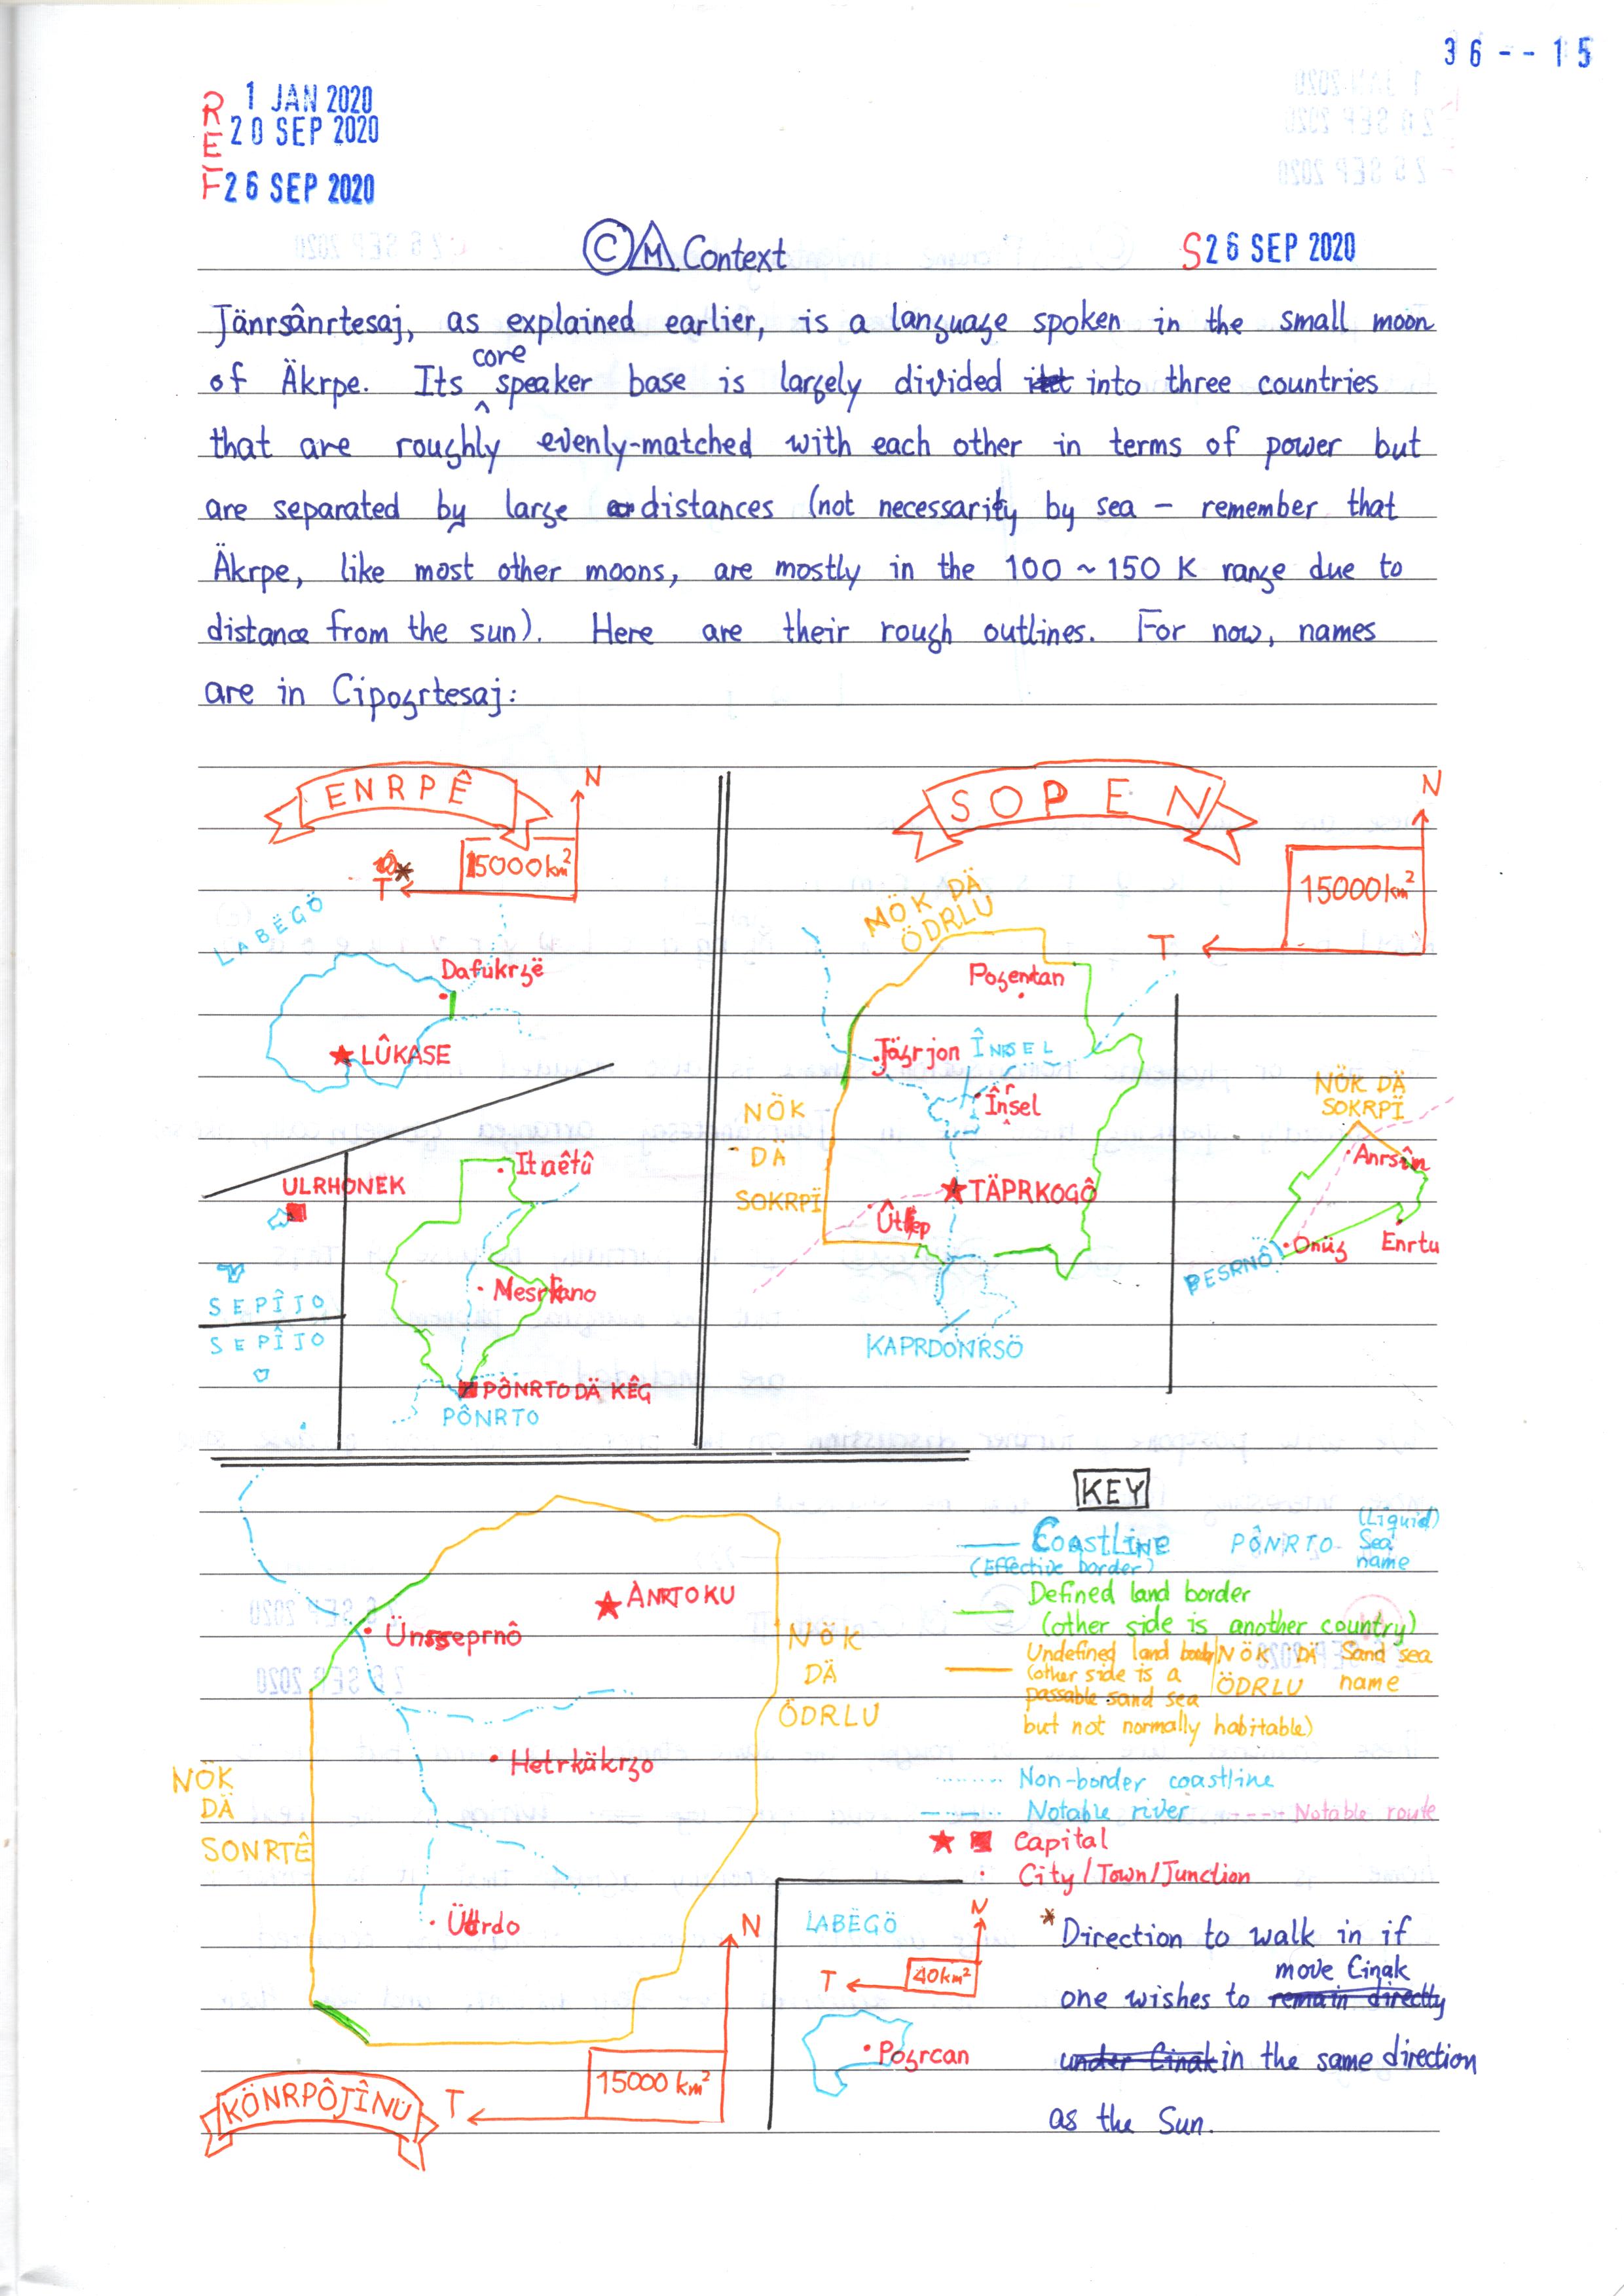 36--15
REF
1 JAN 2020
20 SEP 2020
26 SEP 2020
Ⓒ M Context
S 26 SEP 2020
Jänrsânrtesaj, as explained earlier, is a language spoken in the small moon
of Äkrpe. Its core speaker base is largely divided into three countries
that are roughly evenly-matched with each other in terms of power but
are separated by large distances (not necessarily by sea – remember that
Äkrpe, like most other moons, are mostly in the 100 ~ 150 K range due to
distance from the sun). Here are their rough outlines. For now, names
are in Cipogrtesaj:
ENRPÊ
N
15000km²
*
T
LABËGÖ
Dafukrgë
LÛKASE
ULRHONEK
SEPÎJO
SEPÎJO
Itaêtû
PÔNRTO DÄ KÊG
PÔNRTO
SOPEN
N
15000km²
T
NÖK DÄ
ÖDRLU
Pogentan
Jägrjon
ÎNRSEL
Înrsel
NÖK
DÄ
SOKRPÏ
TÄPRKOGÔ
KAPRDONRSÖ
NÖK DÄ
SOKRPÏ
Anrsîn
Onüg
Enrtu
BESRNÔ
ANRTOKU
NÖK
DÄ
ÖDRLU
Hetrkäkrgo
NÖK
DÄ
SONRTÊ
N
T
15000 km²
KÖNRPÔJÎNU
KEY
COASTLINE
(Effective border)
PÔNRTO
(Liquid)
Sea
name
Defined land border
(other side is another country)
Undefined land
(other side is a
passable sand sea
but not normally habitable)
NÖK DÄ
ÖDRLU
Sand sea
name
Non-border coastline
Notable river
Notable route
Capital
City/Town/Junction
LABËGÖ
N
T
40km²
Pogrcan
* Direction to walk in if
one wishes to move Cinak
in the same direction
as the Sun.